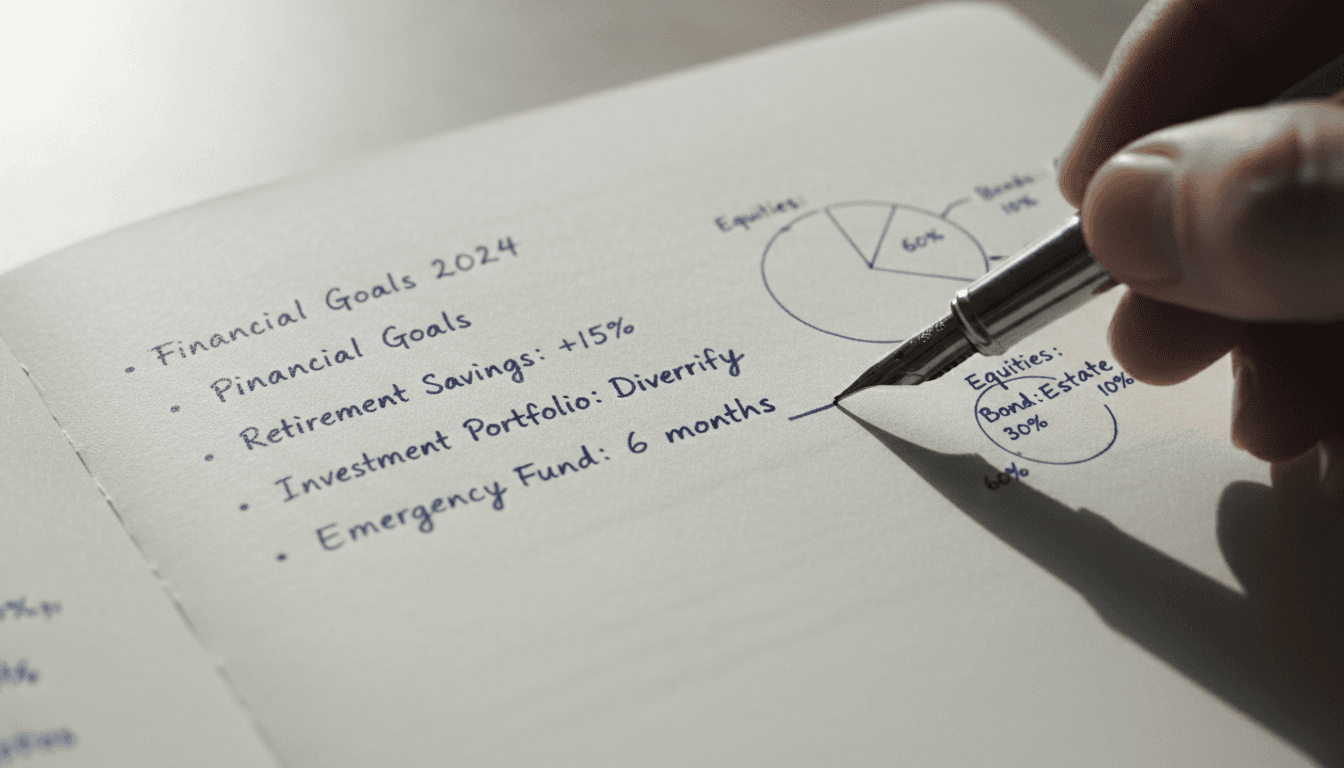 • Financial Goals 2024
• Pinancial Goals
• Retirement Savings: +15%
• Investment Portfolio: Diverrify
• Emergency Fund: 6 months
Equities:
60%
Bonds:
10%
Equities:
Bond: Estate
10%
30%
60%